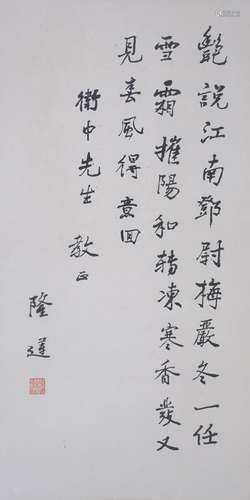 艷說江南鄧尉梅嚴冬一任
雪霜摧陽和轉凍寒香發又
見春風得意回
衛中先生 教正
隆蓮